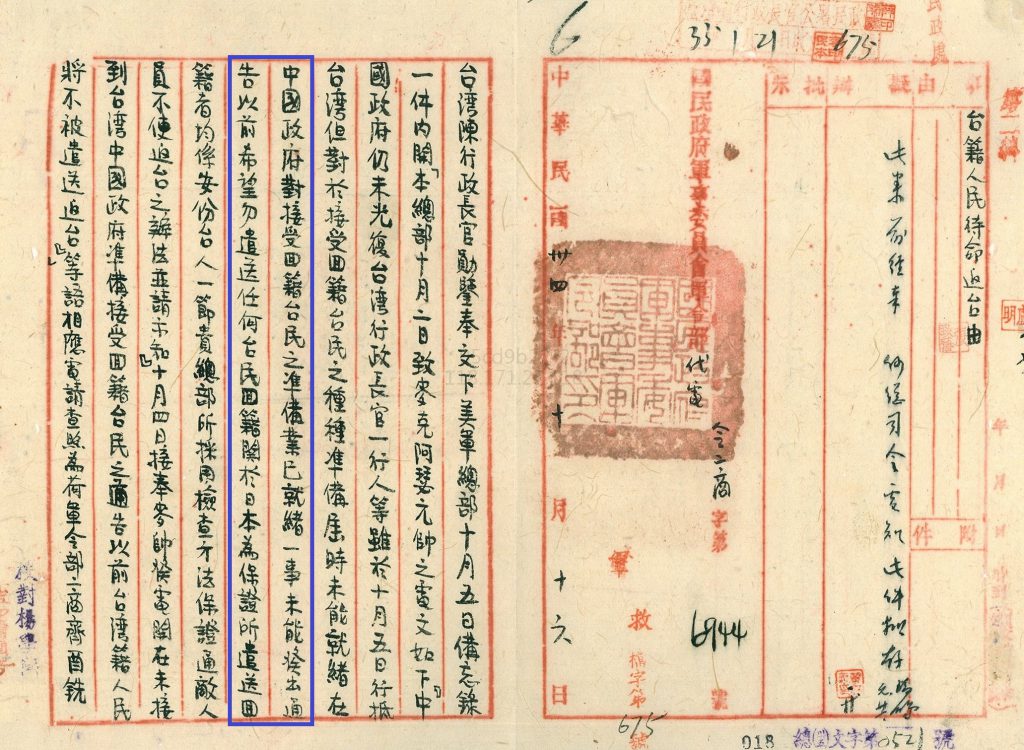 民政處
33 1 21
675
6
第二編
事由
擬辦
批示
附件
年
月
日
台籍人民待命迫台由
此案前經來
何總司令電知此件擬存
國民政府軍事委員會軍令部
代電
令二商
字第
6944
號
中華民國卅四年十月十六日
軍
救
檔字第
675
號
台湾陳行政長官勛鑒奉交下美軍總部十月五日備忘錄
一件內開「本總部十月二日致麥克阿瑟元帥之電文如下「中
國政府仍未光復台湾行政長官一行人等雖於十月五日行抵
台湾但對於接受回籍台民之種種準備屆時未能就緒在
中國政府對接受回籍台民之準備業已就緒一事未能發出通
告以前希望勿遣送任何台民回籍関於日本為保證所遣送回
籍者均係安份台人一節貴總部所採用檢查方法保證通敵人
員不便迫台之辦法並請示知」十月四日接奉麥帥發電開在未接
到台湾中國政府準備接受回籍台民之通告以前台湾籍人民
將不被遣送迫台」等語相應電請查照為荷軍令部二商齊酉銑
校對楊
018
總(2)文字第0521號